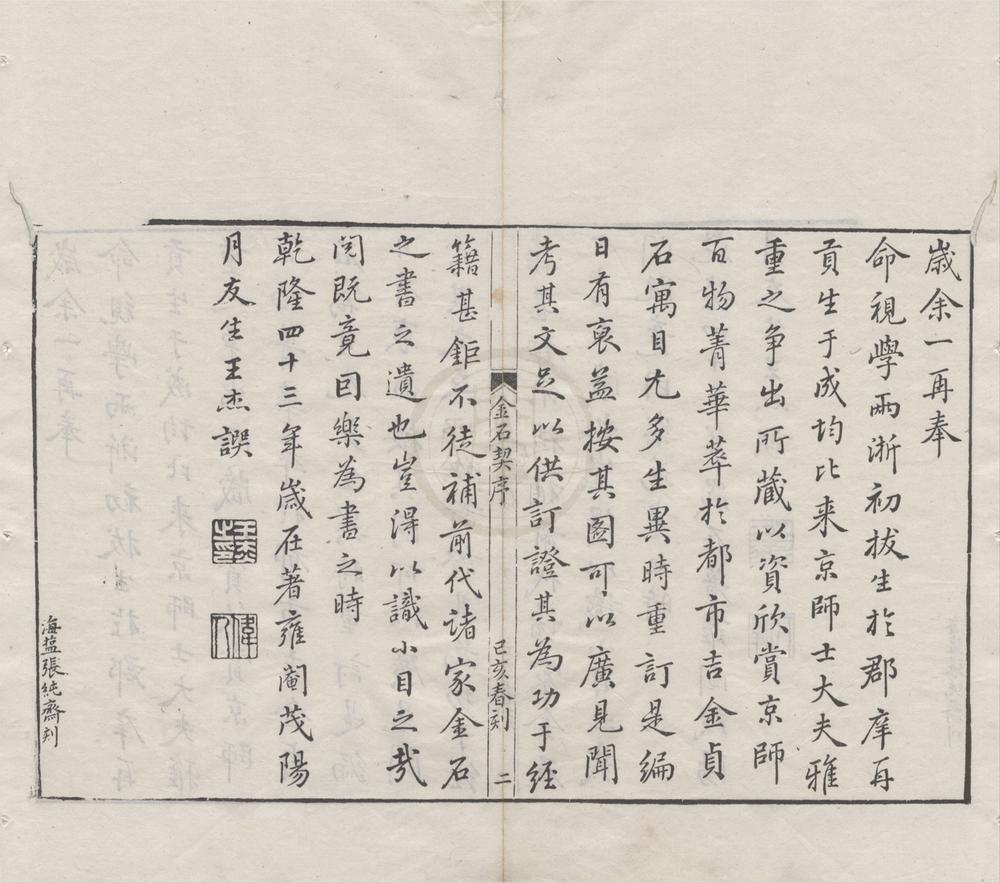 歲余一再奉
命視學兩浙初拔生於郡庠再
貢生于成均比来京師士大夫雅
重之争出所藏以資欣賞京師
百物菁華萃於都市吉金貞
石寓目尤多生異時重訂是編
日有裒益按其圖可以廣見聞
考其文足以供訂證其為功于經
金石契序
己亥春刻
二
籍甚鉅不徒補前代諸家金石
之書之遺也豈得以識小目之㢤
閱既竟囙樂為書之時
乾隆四十三年歲在著雍閹茂陽
月友生王杰譔
王杰之印
偉人
海盐張純齋刻